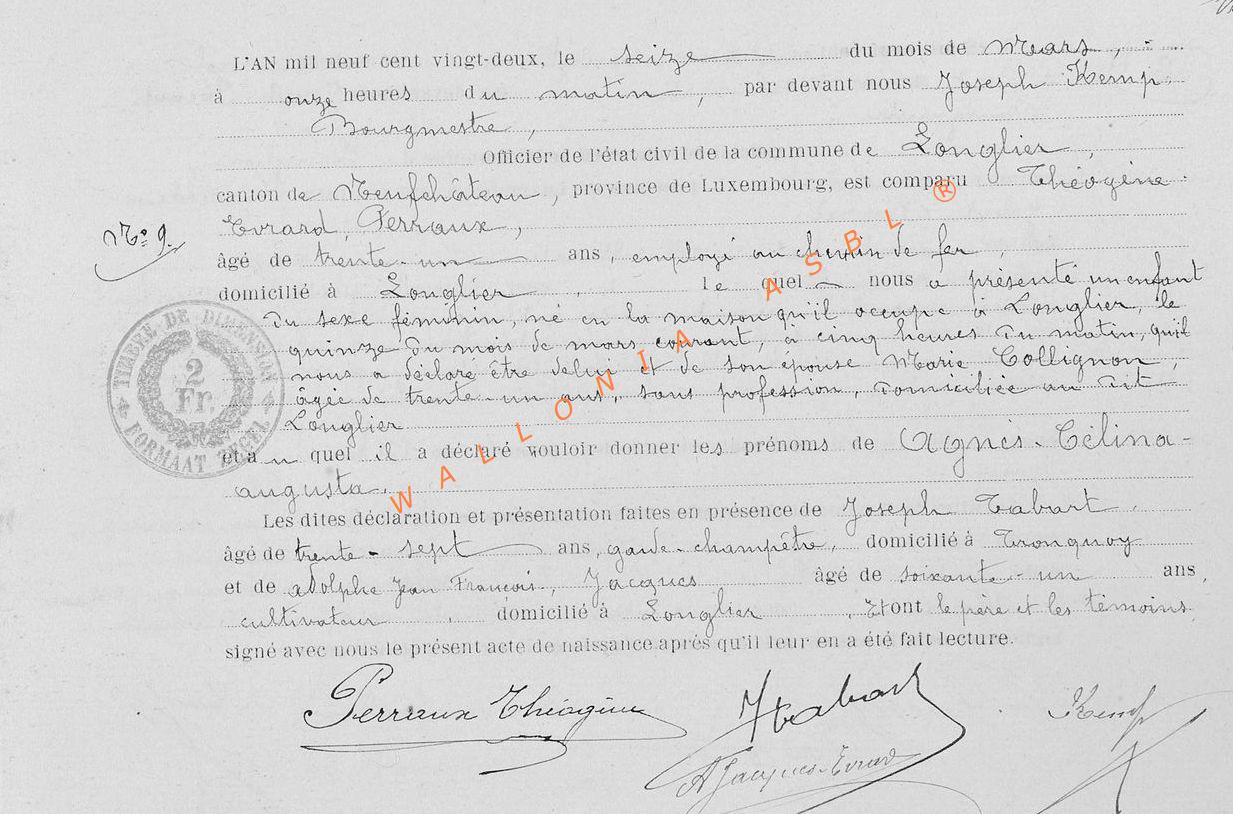 L'AN mil neuf cent vingt-deux, le seize du mois de Mars,
à onze heures du matin, par devant nous Joseph Kemp.
Bourgmestre,
Officier de l'état civil de la commune de Longlier,
canton de Neufchâteau, province de Luxembourg, est comparu Théogène
Evrard, Perraux,
N° 9.
âgé de trente-un ans, employé au chemin de fer,
domicilié à Longlier. le quel nous a présenté un enfant
du sexe féminin, né en la maison qu'il occupe à Longlier, le
quinze du mois de mars courant, à cinq heures du matin, qu'il
nous a déclaré être de lui et de son épouse Marie Collignon,
âgée de trente-un ans, sans profession, domiciliée au dit
Longlier
et au quel il a déclaré vouloir donner les prénoms de Agnès-Célina-
Augusta.
Les dites déclaration et présentation faites en présence de Joseph Tabart.
âgé de trente-sept ans, garde-champêtre, domicilié à Tronquoy
et de Adolphe Jean François, Jacques âgé de soixante-un ans,
cultivateur, domicilié à Longlier. Et ont le père et les témoins
signé avec nous le présent acte de naissance après qu'il leur en a été fait lecture.
Perraux Théogène JTabart Kemp
AJacques-Evrard
TIMBRE DE DIMENSION
2 Fr.
FORMAAT ZEGEL
WALLONIA ASBL ®